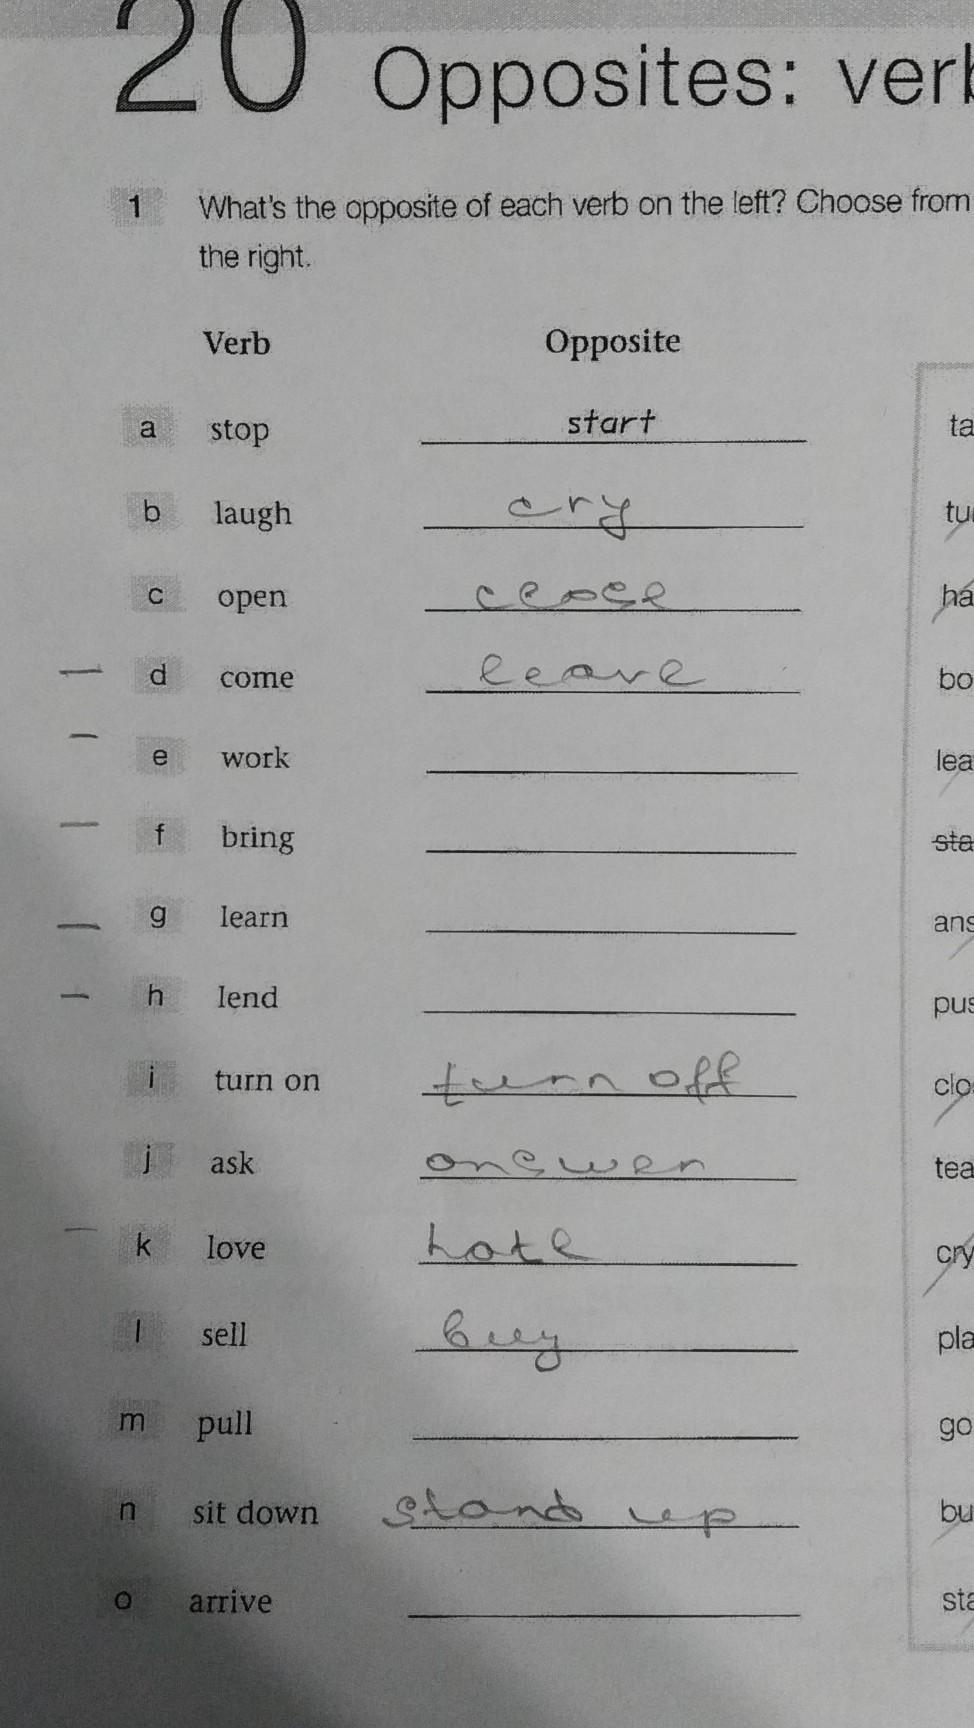 20 Opposites: verb
1 What's the opposite of each verb on the left? Choose from
the right.
Verb Opposite
a stop start ta
b laugh cry tu
c open close ha
d come leave bo
e work lea
f bring sta
g learn ans
h lend pus
i turn on turn off clo
j ask answer tea
k love hate cry
l sell buy pla
m pull go
n sit down stand up bu
o arrive sta